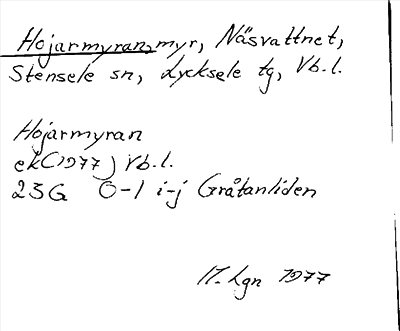 Hojarmyran, myr, Näsvattnet,
Stensele sn, Lycksele tg, Vb.l.
Hojarmyran
ek (1977) Vb.l.
23G 0-1 i-j Gråtanliden
Lgn 1977